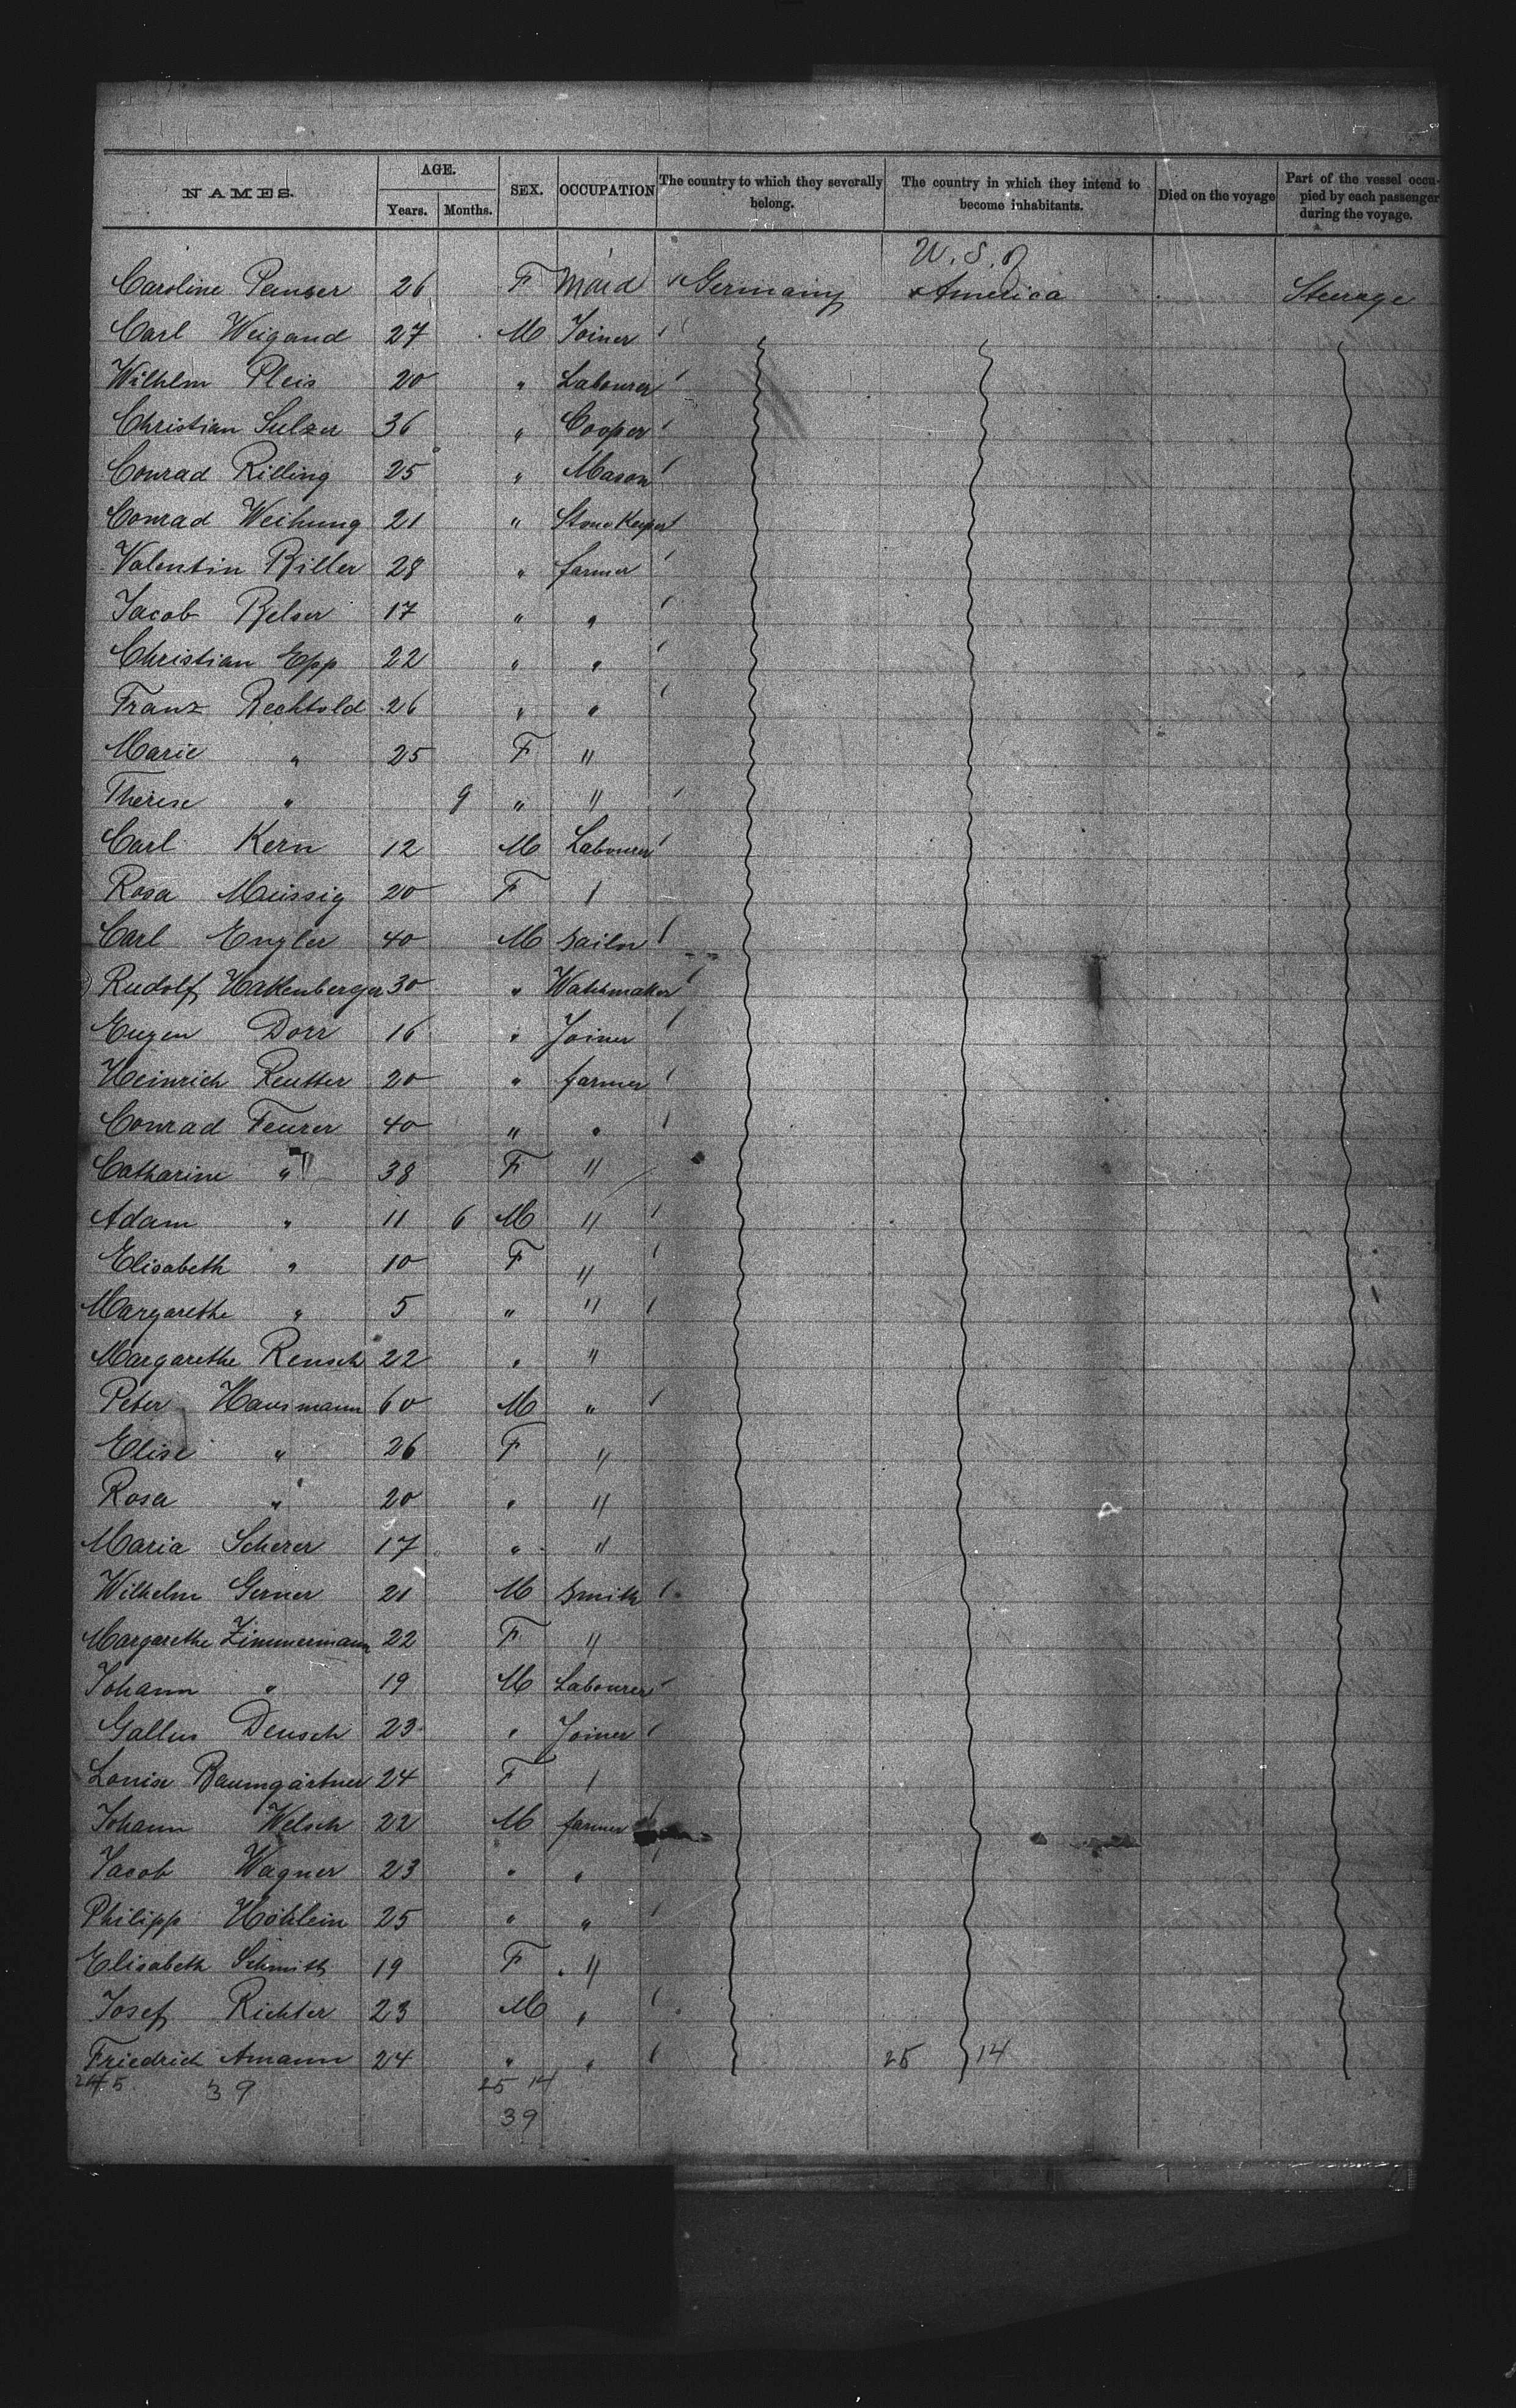 NAMES. AGE. Years. Months. SEX. OCCUPATION The country to which they severally belong. The country in which they intend to become inhabitants. Died on the voyage Part of the vessel occupied by each passenger during the voyage.
U. S. of
Caroline 26 F Maid Germany America Steerage
Carl Weigand 27 M Joiner
Wilhlm Pleis 20 " Labourer
Christian Sulzer 36 " Cooper
Conrad Rilling 25 " Mason
Conrad Weihung 21 "
Valentin Biller 28 " farmer
Jacob Belser 17 " "
Christian Epp 22 " "
Franz Bechtold 26 " "
Marie " 25 F "
Therese " 9 " "
Carl Kern 12 M Labourer
Rosa Meissig 20 F /
Carl Engler 40 M
Rudolf Hakenberger 30 " Watchmaker
Eugen Dorr 16 " Joiner
Heinrich Reutter 20 " farmer
Conrad Feurer 40 " "
Catharine " 38 F "
Adam " 11 6 M "
Elisabeth " 10 F "
Margarethe " 5 " "
Margarethe Rensch 22 " "
Peter Hausmann 60 M "
Elise " 26 F "
Rosa " 20 " "
Maria Scherer 17 " "
Wilhelm Gerner 21 M Smith
Margarethe Zimmermann 22 F "
Johann " 19 M Labourer
Gallus Deusch 23 " Joiner
Louise Baumgärtner 24 F /
Johann Welsch 22 M farmer
Jacob Wagner 23 " "
Philipp Höhlein 25 " "
Elisabeth Schmitt 19 F "
Josef Richter 23 M "
Friedrich Amann 24 " " 25 14
39 25 14
39